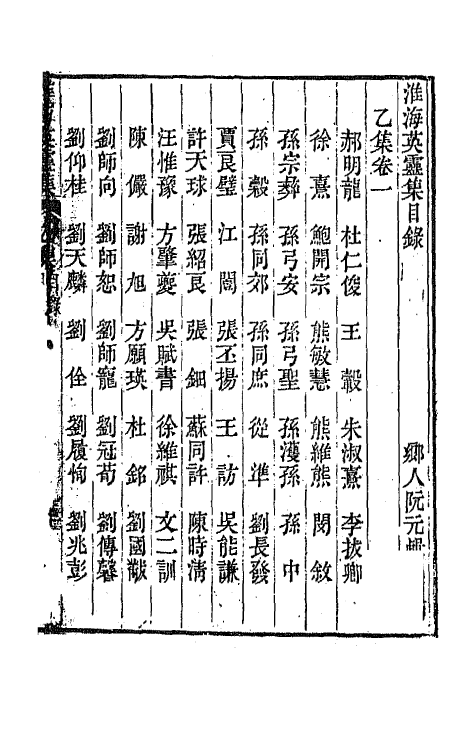 淮海英靈集目錄　鄉人阮元
乙集卷一
郝明龍　杜仁俊　王　轂　朱淑熹　李拔卿
徐　熹　鮑開宗　熊敏慧　熊維熊　閔　敘
孫宗彝　孫弓安　孫弓聖　孫漢孫　孫　中
孫　穀　孫同郊　孫同庶　從　準　劉長發
賈良璧　江　闓　張丕揚　王　訪　吳能謙
許天球　張紹良　張　鈿　蘇同許　陳時淸
汪惟豫　方肇夔　吳賦書　徐維祺　文二訓
陳　儼　謝　旭　方願瑛　杜　錦　劉國黻
劉師向　劉師恕　劉師寵　劉冠荀　劉傳馨
劉仰桂　劉天麟　劉　佺　劉履恂　劉兆彭